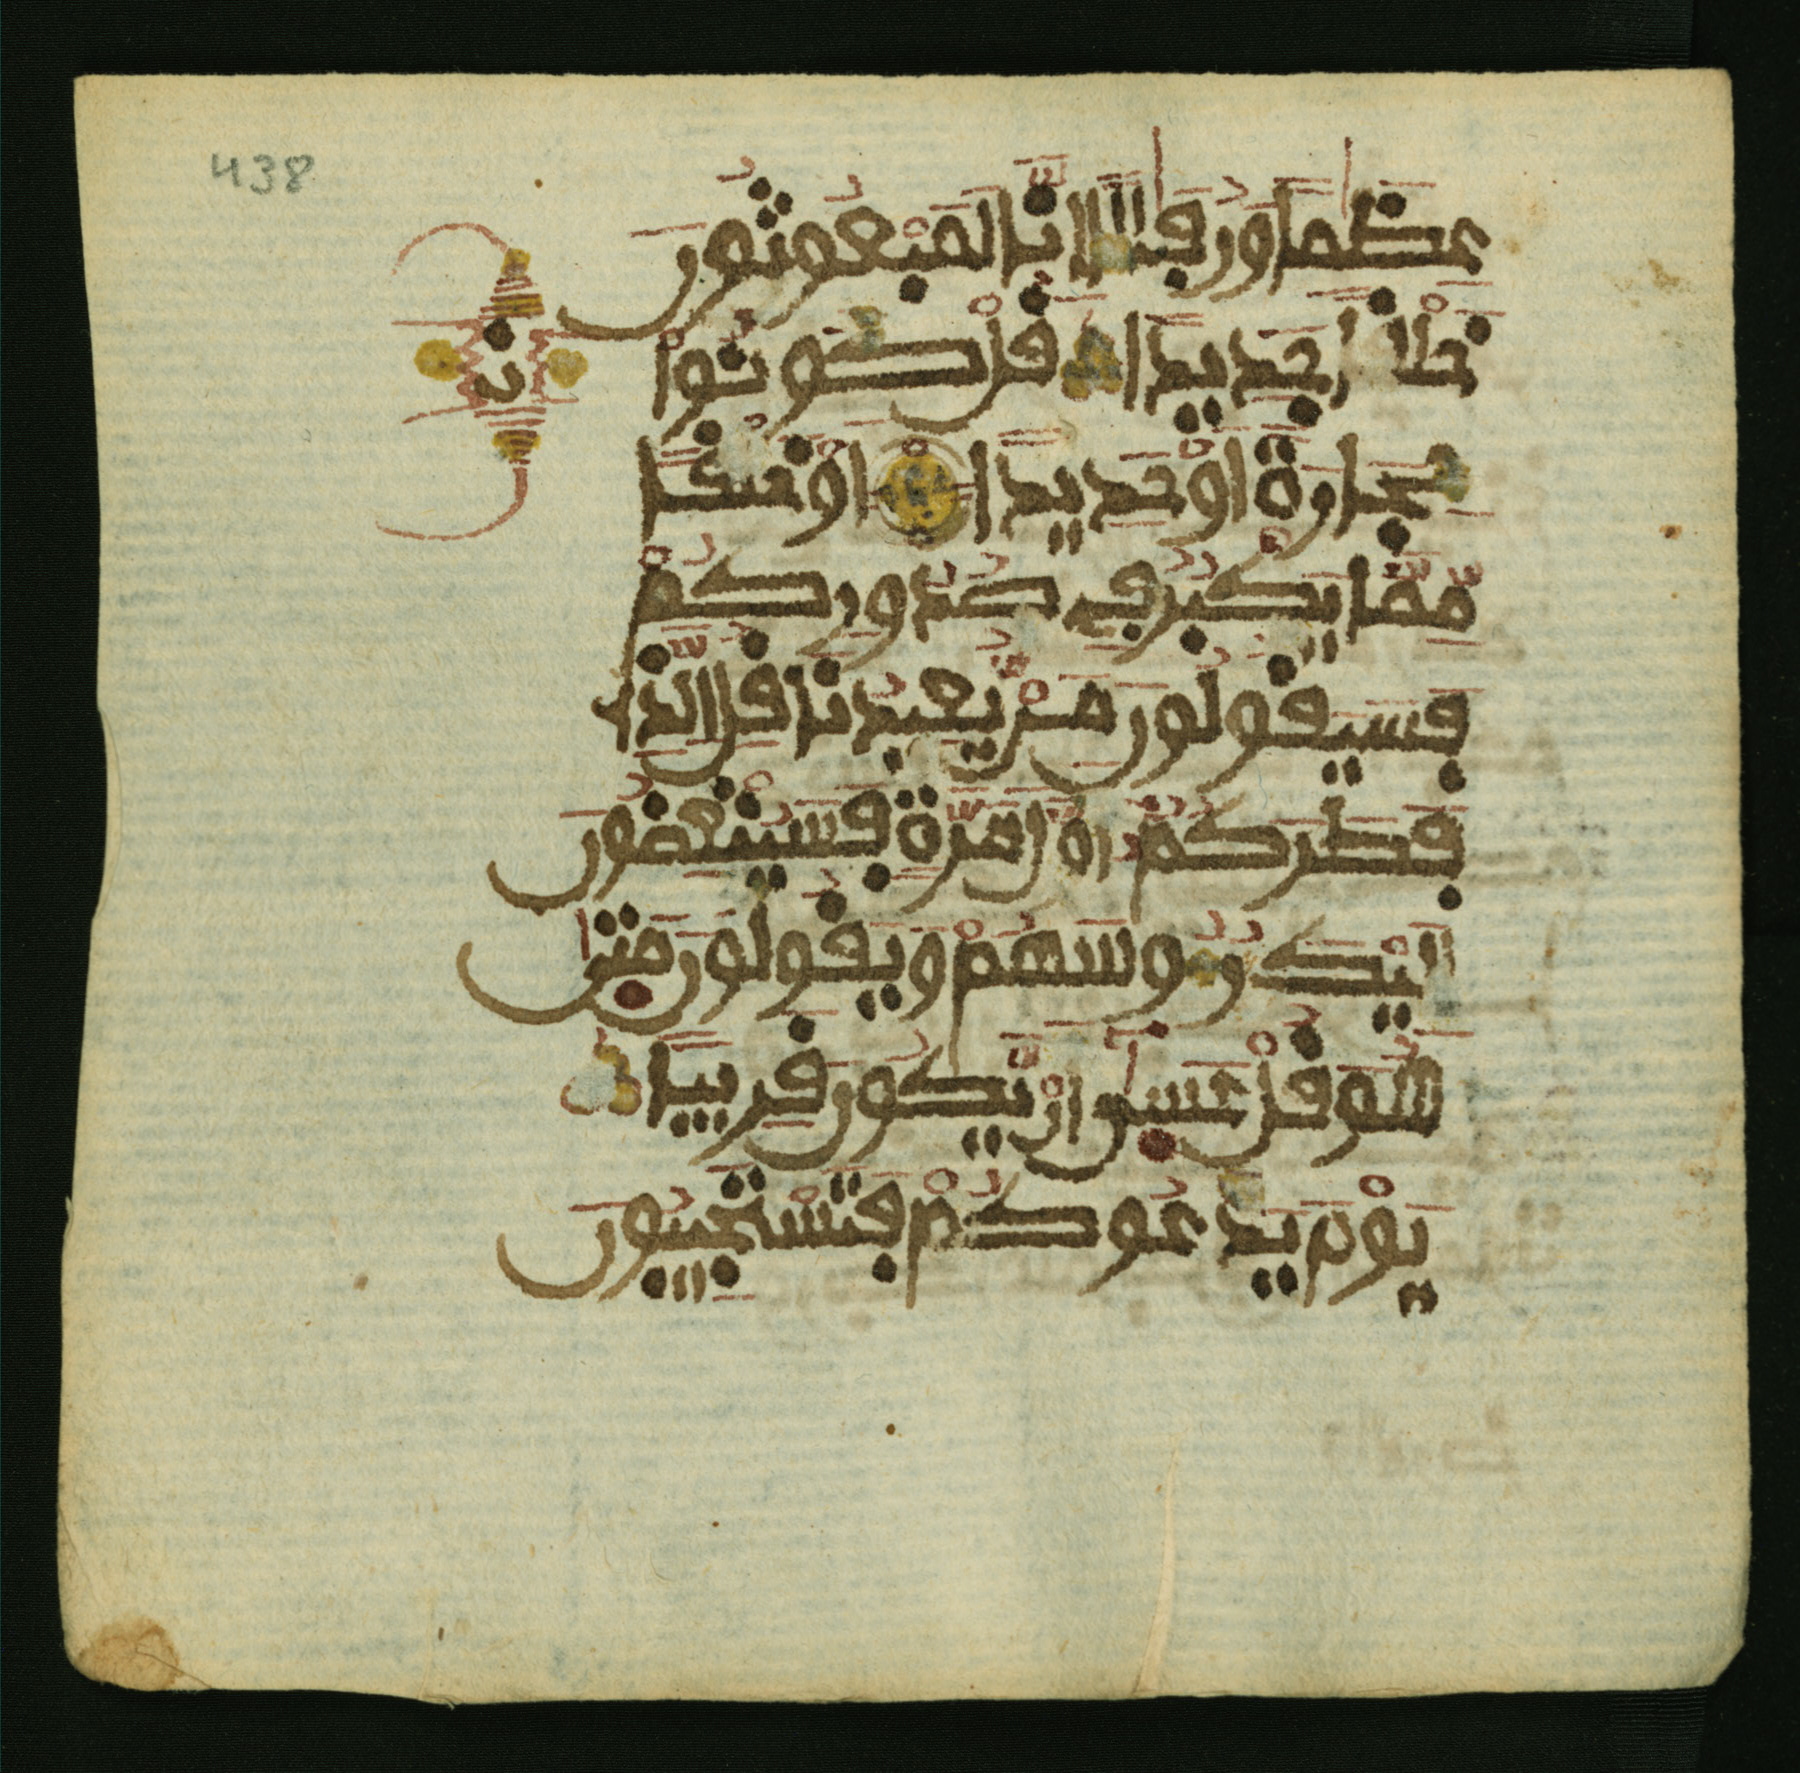 438
عظما ورفتا انا لمبعوثون
خلقا جديدا قل كونوا
ن
حجارة او حديدا او خلقا
مما يكبر في صدوركم
فسيقولون من يعيدنا قل الذي
فطركم اول مرة فسينغضون
اليك رءوسهم ويقولون متى
هو قل عسى ان يكون قريبا
يوم يدعوكم فتستجيبون